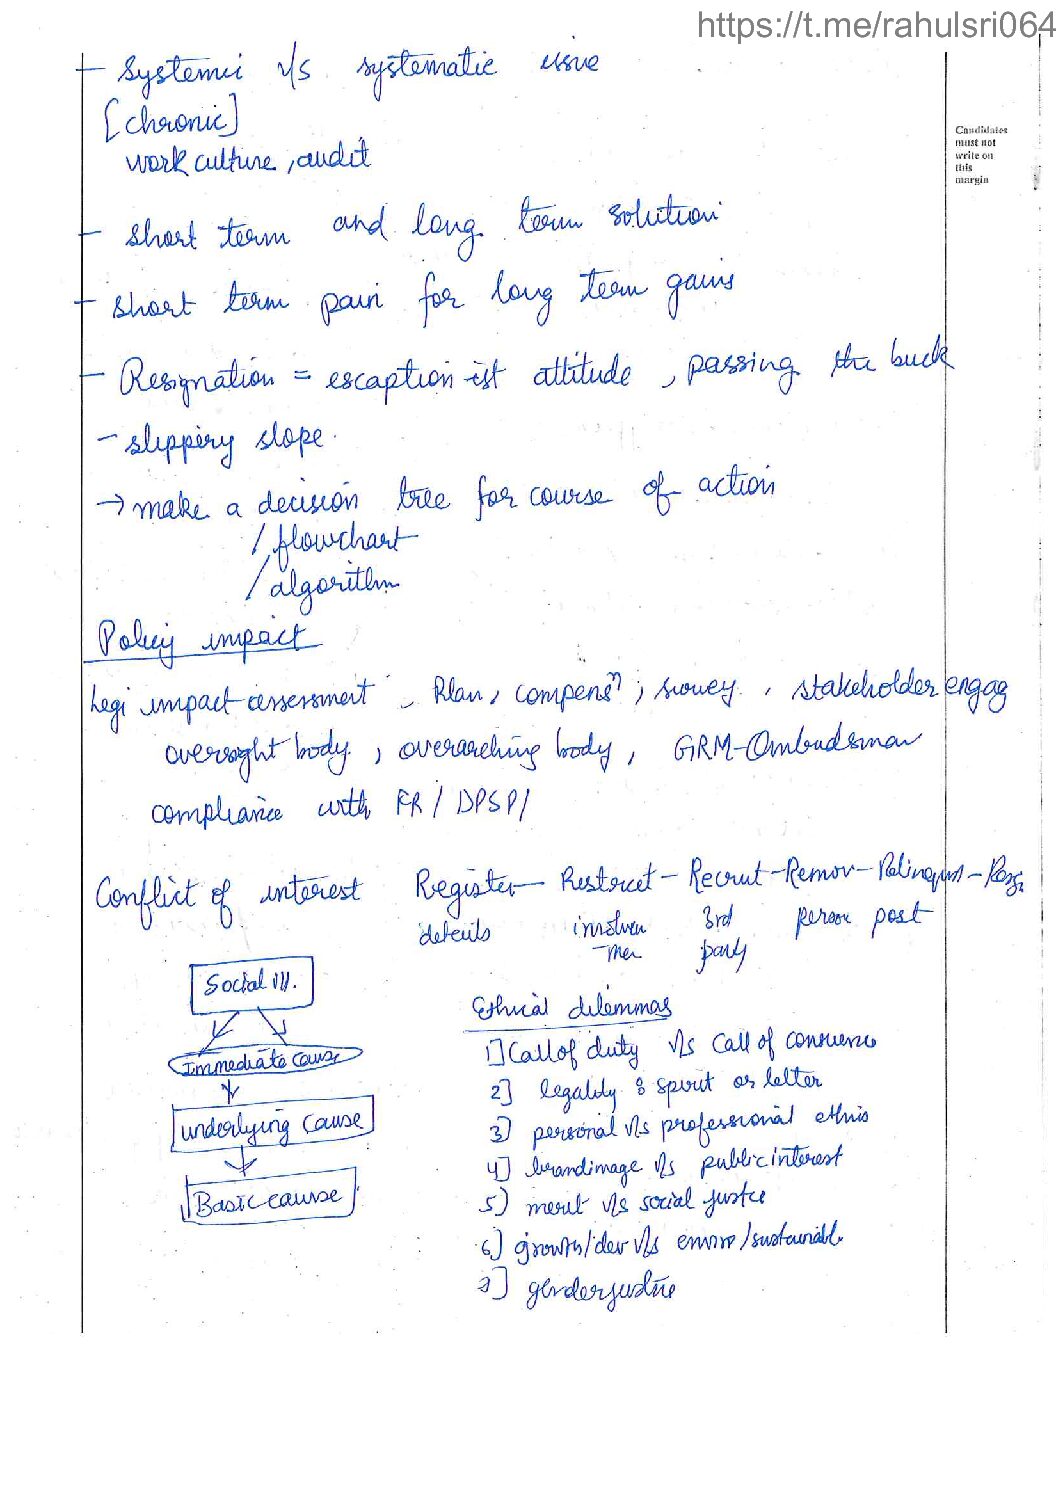 https://t.me/rahulsri064
Candidates
must not
write on
this
margin
- Systemic v/s systematic issue
[chronic]
work culture, audit
- short term and long term solution
- short term pain for long term gains
- Resignation = escaption-ist attitude, passing the buck
- slippery slope.
→ make a decision tree for course of action
/ flowchart
/ algorithm
Policy impact
Legi impact assessment, Plan, compensⁿ, survey, stakeholder engag
oversight body, overarching body, GRM-Ombudsman
compliance with FR / DPSP /
Conflict of interest Register - Restrict - Recruit - Remov - Relinquish -
details involvement 3rd party person post
Social ill.
Immediate cause
underlying cause
Basic cause
Ethical dilemmas
1] Call of duty v/s call of conscience
2] legality : spirit or letter
3) personal v/s professional ethics
4] brand image v/s public interest
5) merit v/s social justice
6) growth/dev v/s enviro/sustainabl
7] gender justice